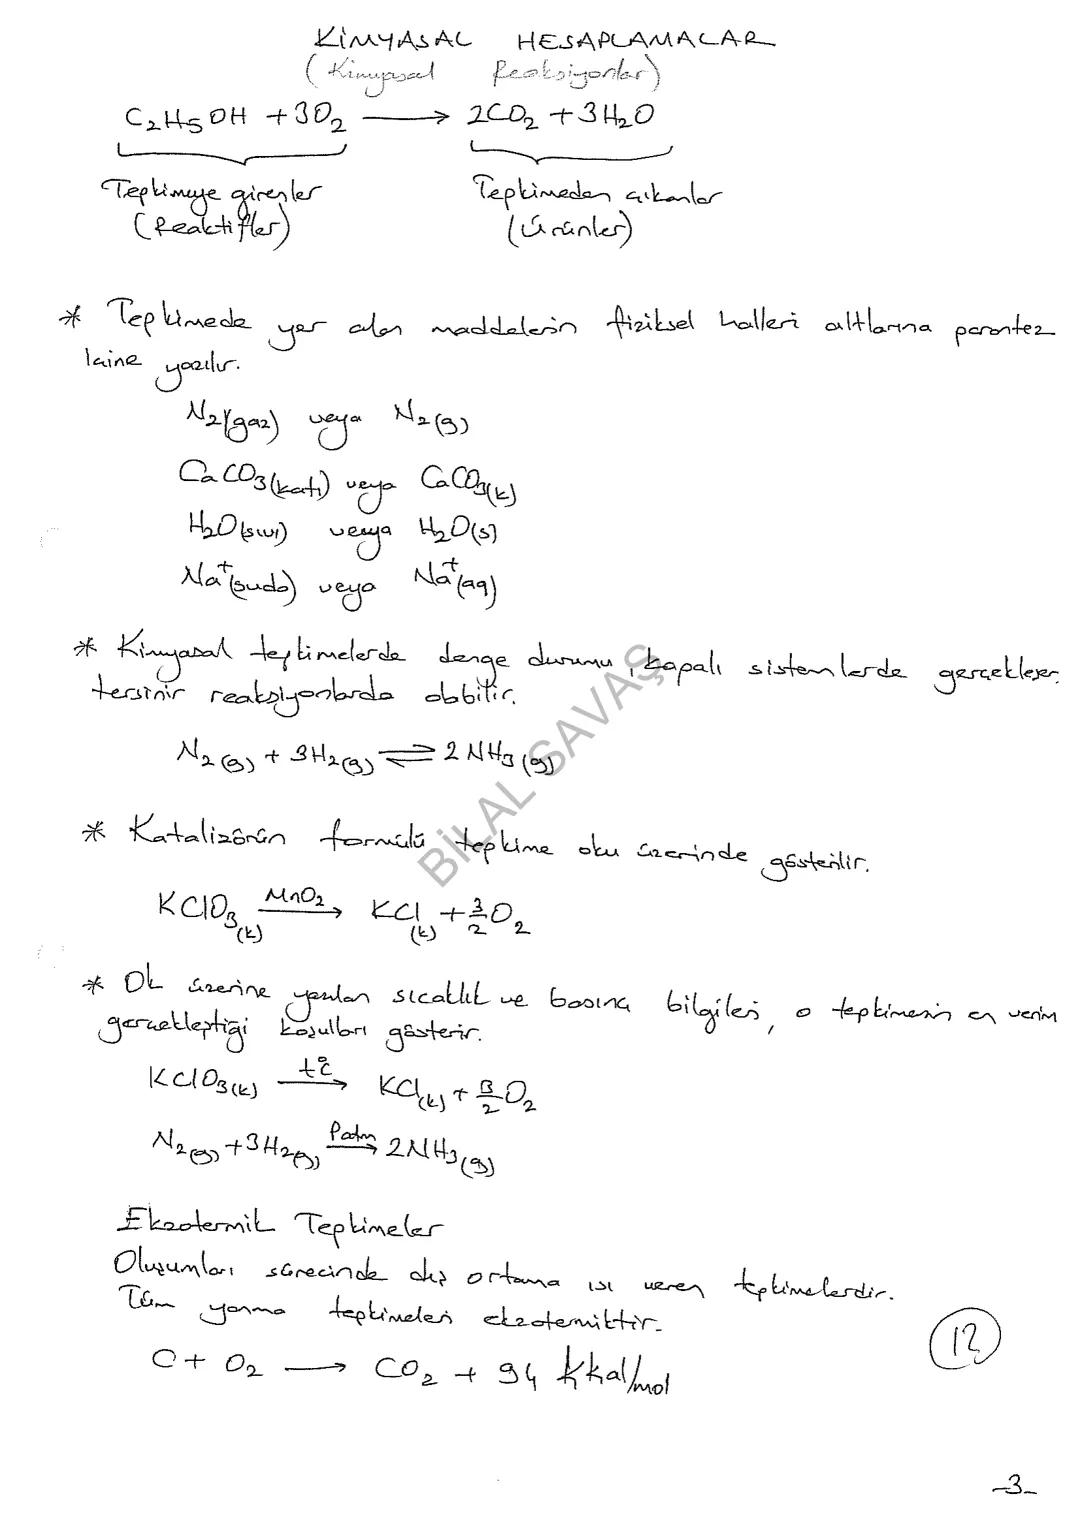 KİMYASAL HESAPLAMALAR
(Kimyasal Reaksiyonlar)
C₂H₅OH + 3O₂ ⟶ 2CO₂ + 3H₂O
Tepkimeye girenler Tepkimeden çıkanlar
(Reaktifler) (Ürünler)
* Tepkimede yer alan maddelerin fiziksel halleri altlarına parantez
içine yazılır.
N₂(gaz) veya N₂(g)
CaCO₃(katı) veya CaCO₃(k)
H₂O(sıvı) veya H₂O(s)
Na⁺(suda) veya Na⁺(aq)
* Kimyasal tepkimelerde denge durumu, kapalı sistemlerde gerçekleşen
tersinir reaksiyonlarda olabilir.
N₂(g) + 3H₂(g) ⇌ 2NH₃(g)
* Katalizörün formülü tepkime oku üzerinde gösterilir.
KClO₃(k) —MnO₂→ KCl(k) + 3/2 O₂
* Ok üzerine yazılan sıcaklık ve basınç bilgileri, o tepkimenin en verim
gerçekleştiği koşulları gösterir.
KClO₃(k) —t°C→ KCl(k) + 3/2 O₂
N₂(g) + 3H₂(g) —Patm→ 2NH₃(g)
Ekzotermik Tepkimeler
Oluşumları sürecinde dış ortama ısı veren tepkimelerdir.
Tüm yanma tepkimeleri ekzotermiktir.
C + O₂ ⟶ CO₂ + 94 kkal/mol
12
-3-
BİLAL SAVAŞ